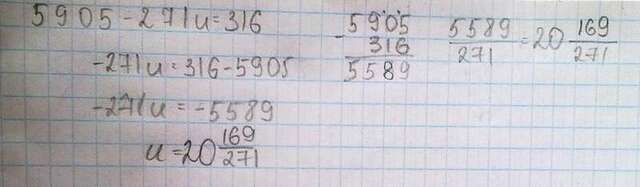 5905-271u=316
-271u=316-5905
-271u=-5589
u=20 169/271
5905
-316
5589
5589/271=20 169/271